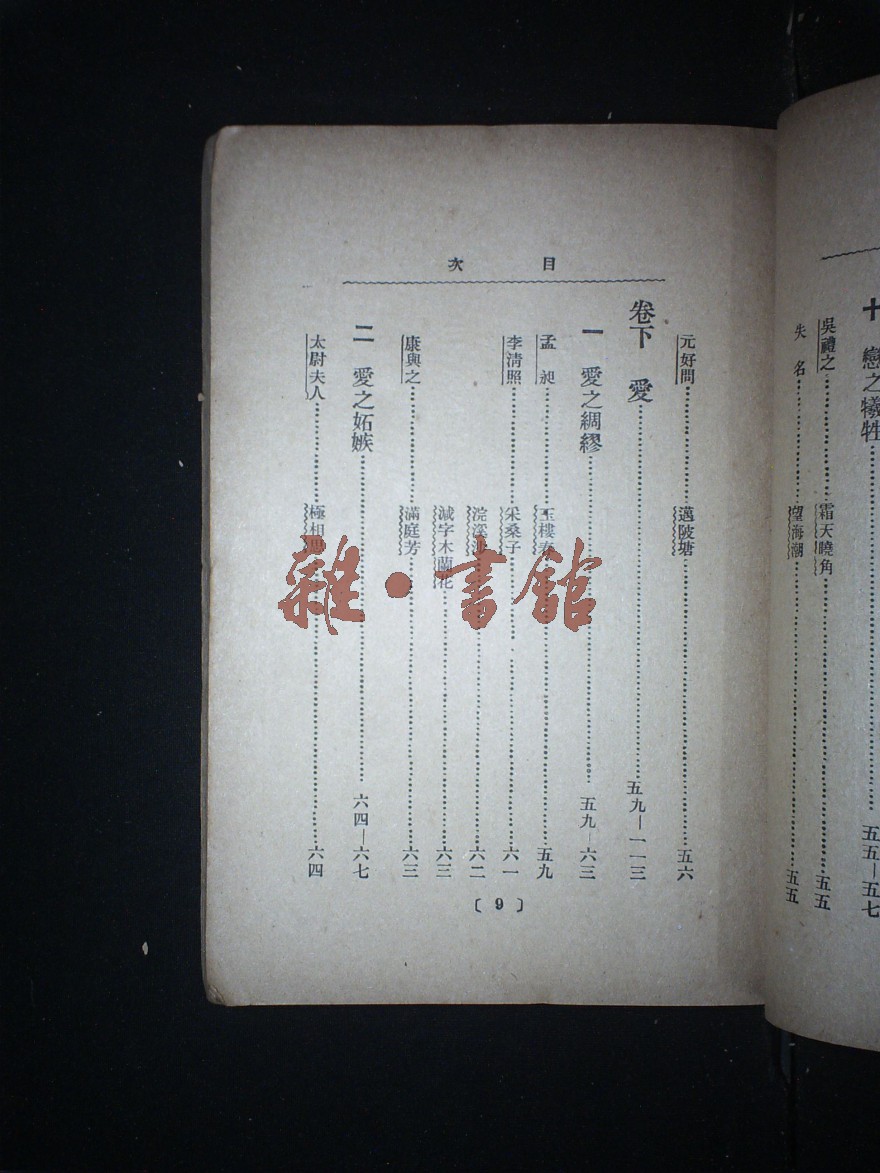 十　戀之犧牲……五五—五七
吳禮之……霜天曉角……五五
失名……望海潮……五五
目次
元好問……邁陂塘……五六
卷下　愛……五九—一一三
一　愛之綢繆……五九—六三
孟昶……玉樓春……五九
李清照……采桑子……六一
浣溪沙……六二
減字木蘭花……六三
康與之……滿庭芳……六三
二　愛之妬嫉……六四—六七
太尉夫人……極相思……六四
〔9〕
雜·書館